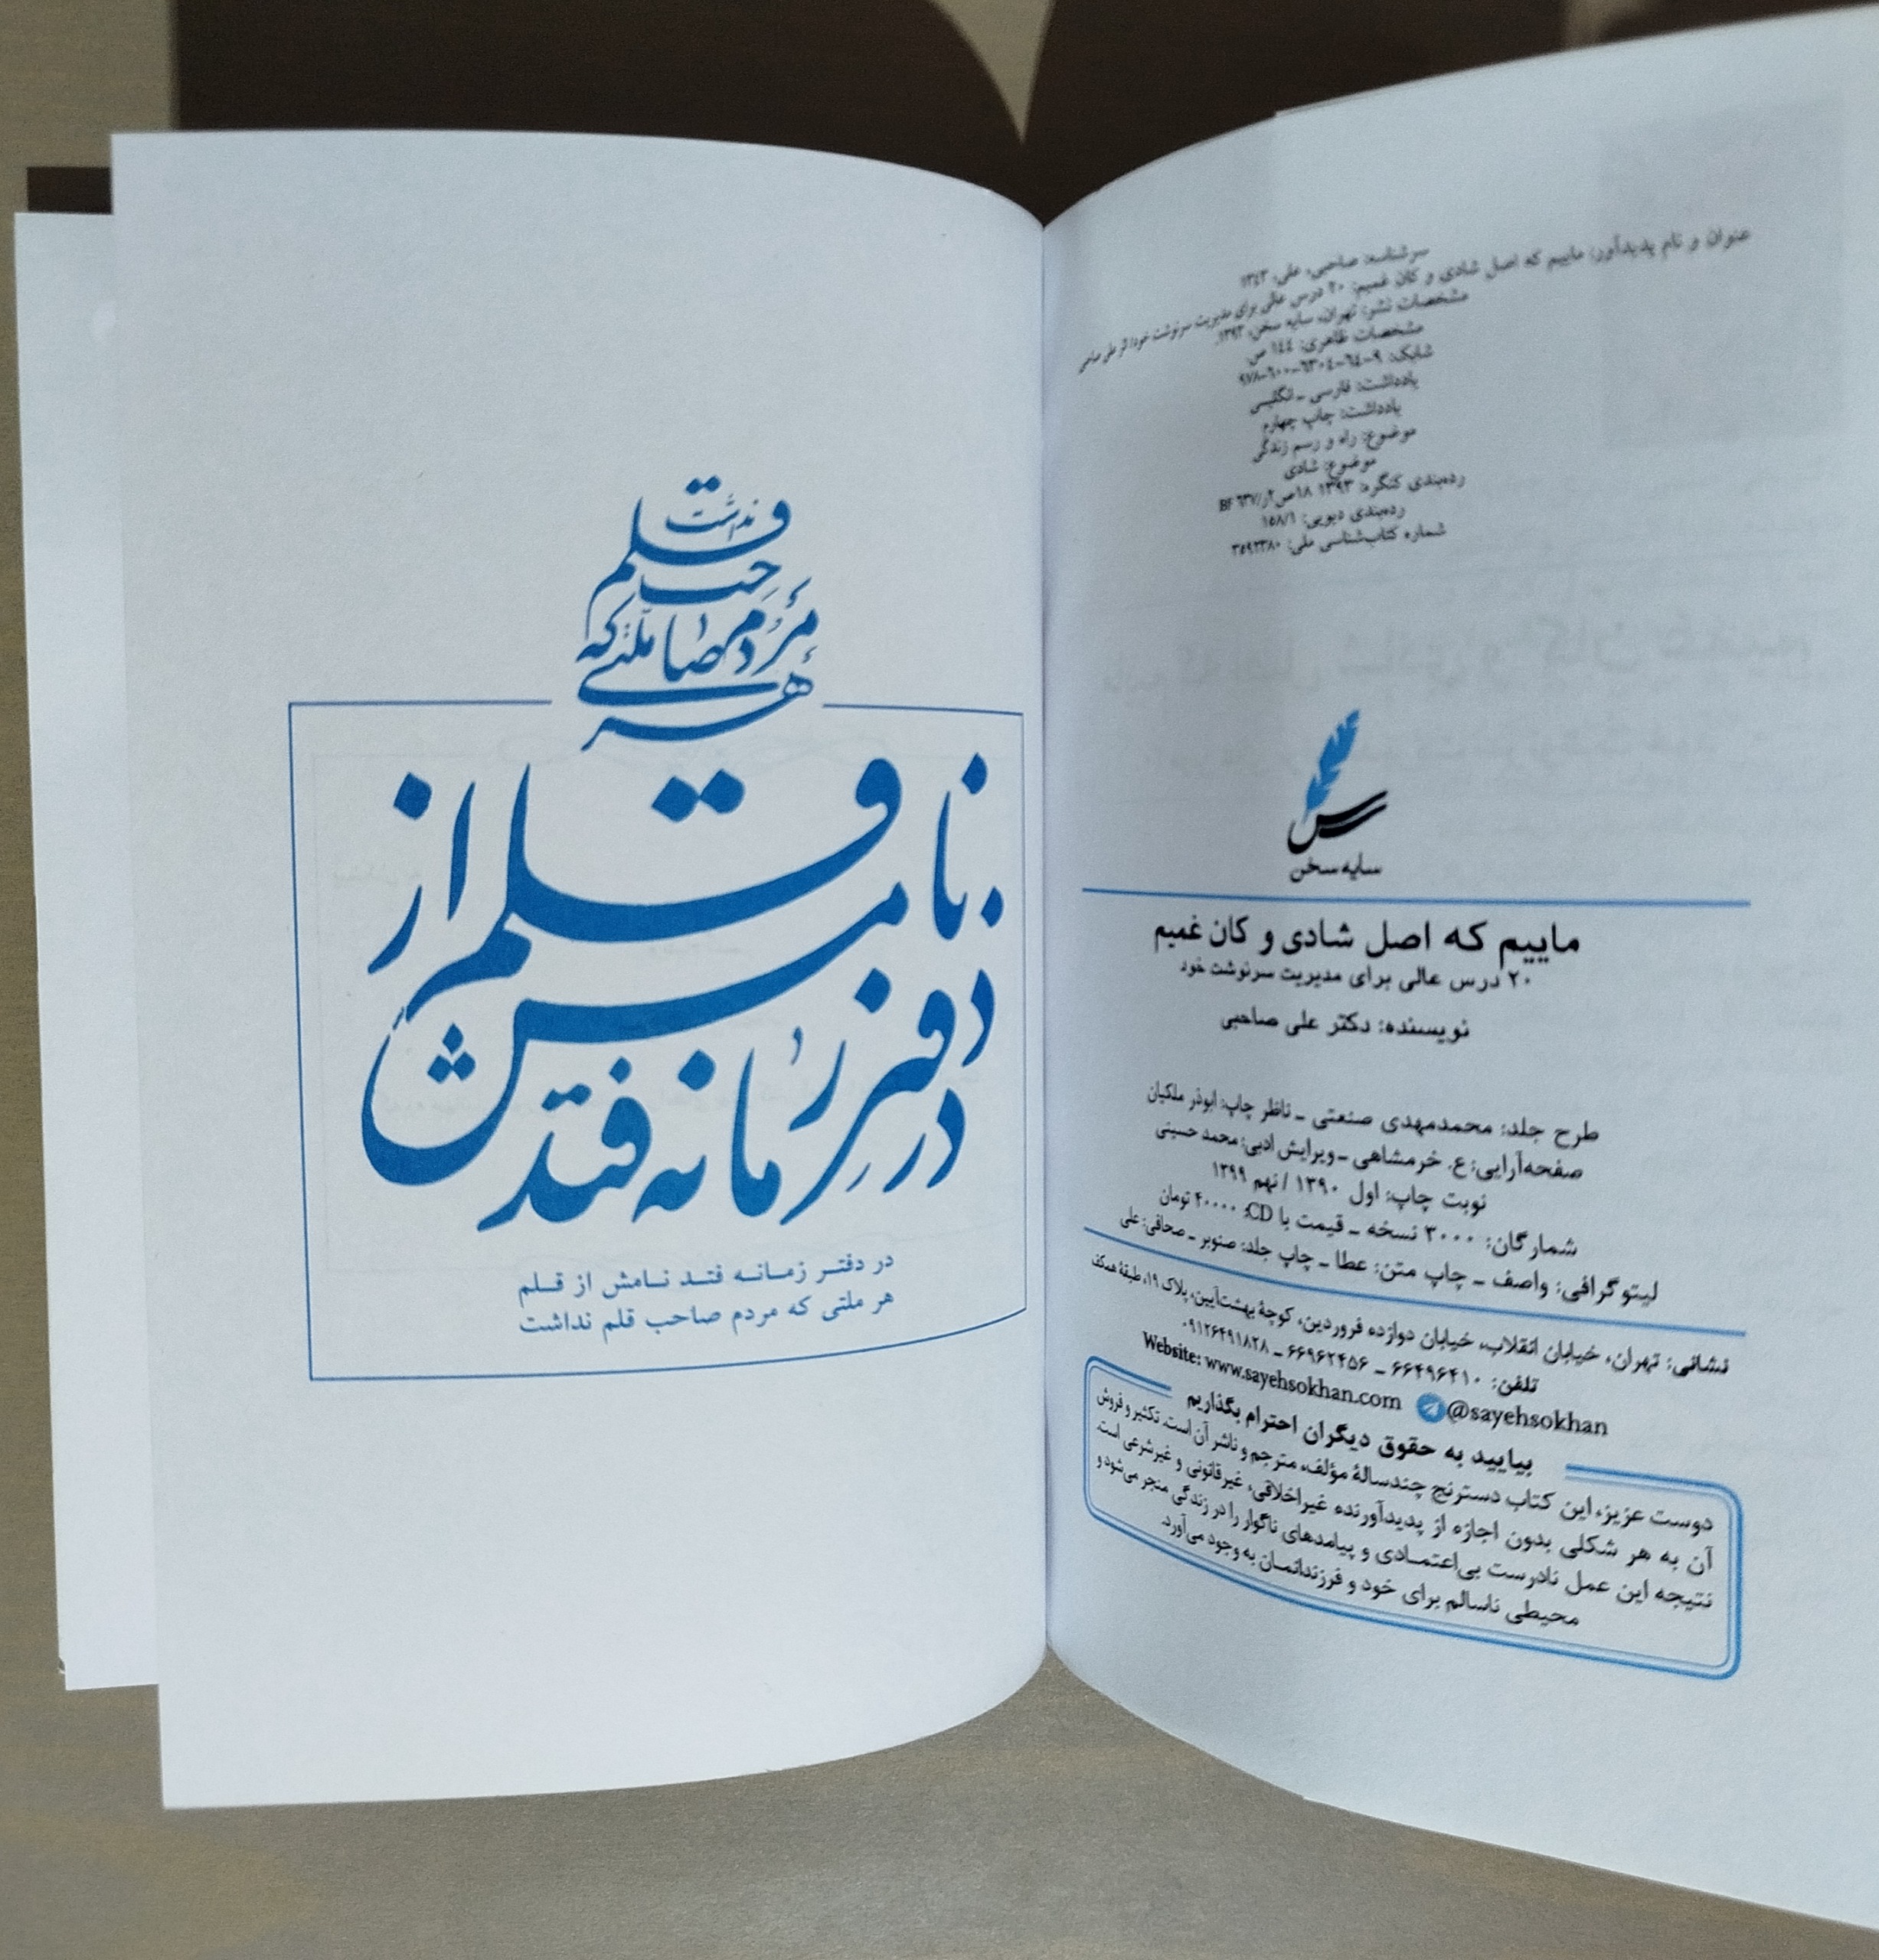 سرشناسه: صاحبی، علی، ۱۳۴۳
عنوان و نام پدیدآور: ماییم که اصل شادی و کان غمیم: ۲۰ درس عالی برای مدیریت سرنوشت خود/ اثر علی صاحبی
مشخصات نشر: تهران، سایه سخن، ۱۳۹۳.
مشخصات ظاهری: ۱۴۴ ص.
شابک: ۹-۶۴-۶۳۰۴-۶۰۰-۹۷۸
یادداشت: فارسی ـ انگلیسی
یادداشت: چاپ چهارم
موضوع: راه و رسم زندگی
موضوع: شادی
رده‌بندی کنگره: ۱۳۹۳ ۱۸ص۲ر/BF ۶۳۷
رده‌بندی دیویی: ۱۵۸/۱
شماره کتاب‌شناسی ملی: ۳۵۹۲۳۸۰
سایه سخن
ماییم که اصل شادی و کان غمیم
۲۰ درس عالی برای مدیریت سرنوشت خود
نویسنده: دکتر علی صاحبی
طرح جلد: محمدمهدی صنعتی ـ ناظر چاپ: ابوذر ملکیان
صفحه‌آرایی: ع. خرمشاهی ـ ویرایش ادبی: محمد حسینی
نوبت چاپ: اول ۱۳۹۰ / نهم ۱۳۹۹
شمارگان: ۳۰۰۰ نسخه ـ قیمت با CD: ۴۰۰۰۰ تومان
لیتوگرافی: واصف ـ چاپ متن: عطا ـ چاپ جلد: صنوبر ـ صحافی: علی
نشانی: تهران، خیابان انقلاب، خیابان دوازده فروردین، کوچهٔ بهشت‌آیین، پلاک ۱۹، طبقهٔ همکف
تلفن: ۶۶۴۹۶۴۱۰ ـ ۶۶۹۶۲۴۵۶ ـ ۰۹۱۲۶۴۹۱۸۲۸
Website: www.sayehsokhan.com @sayehsokhan
بیایید به حقوق دیگران احترام بگذاریم
دوست عزیز، این کتاب دسترنج چندسالهٔ مؤلف، مترجم و ناشر آن است. تکثیر و فروش
آن به هر شکلی بدون اجازه از پدیدآورنده غیراخلاقی، غیرقانونی و غیرشرعی است.
نتیجه این عمل نادرست بی‌اعتمادی و پیامدهای ناگوار را در زندگی منجر می‌شود و
محیطی ناسالم برای خود و فرزندانمان به وجود می‌آورد.
در دفتر زمانه فتد نامش از قلم
هر ملتی که مردم صاحب قلم نداشت
در دفتر زمانه فتد نامش از قلم
هر ملتی که مردم صاحب قلم نداشت